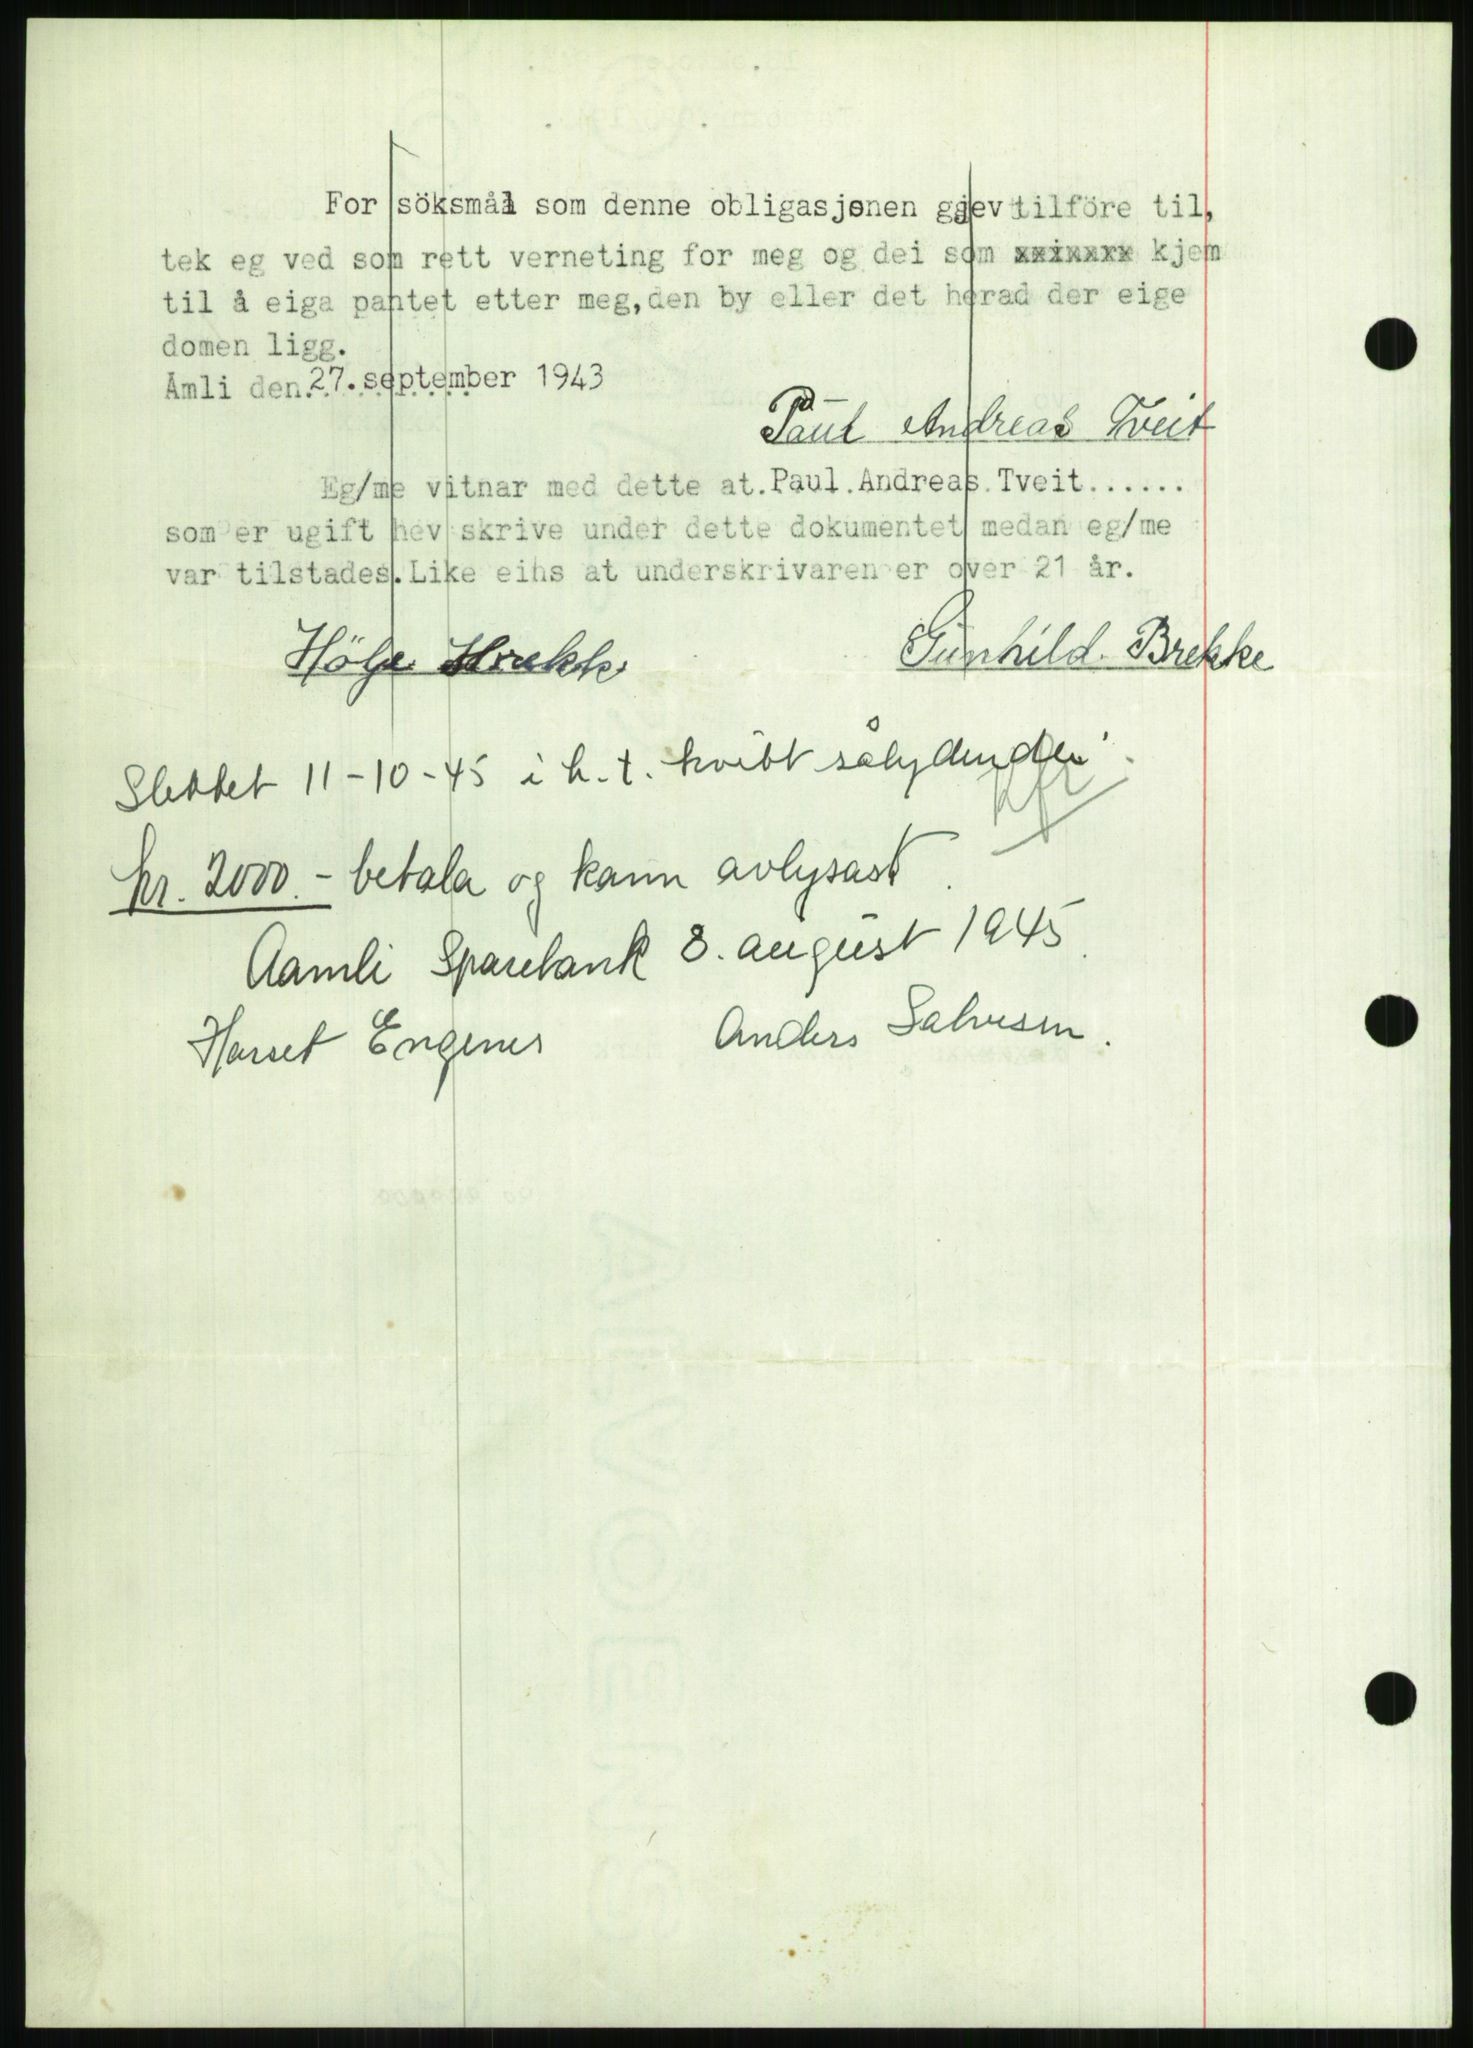 For søksmål som denne obligasjonen gjev tilföre til,
tek eg ved som rett verneting for meg og dei som xxixxxx kjem
til å eiga pantet etter meg,den by eller det herad der eige
domen ligg.
Åmli den.27.september 1943
Paul Andreas Tveit
Eg/me vitnar med dette at.Paul.Andreas.Tveit......
som er ugift hev skrive under dette dokumentet medan eg/me
var tilstades.Like eins at underskrivaren er over 21 år.
Hölje
Gunhild. Brekke
Slettet 11-10-45 i h.t. kvitt sålydende:
kr. 2000.- betala og kann avlysast.
Aamli Sparebank 8. august 1945.
Engenes
Anders Salvesen.